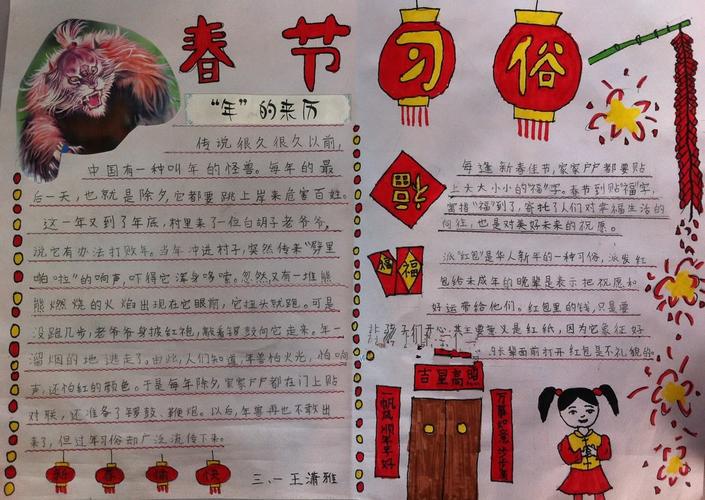 春节习俗
"年"的来历
传说很久很久以前，
中国有一种叫年的怪兽。每年的最
后一天，也就是除夕，它都要跳上岸来危害百姓。
这一年又到了年底，村里来了一位白胡子老爷爷，
说它有办法打败年。当年冲进村子，突然传来"劈里
啪啦"的响声，吓得它浑身哆嗦。忽然，又有一堆熊
熊燃烧的火焰出现在它眼前，它扭头就跑。可是
没跑几步，老爷爷身披红袍，敲着锣鼓向它走来。年一
溜烟的地逃走了。由此，人们知道，年害怕火光，怕响
声，还怕红的颜色。于是每年除夕，家家户户都在门上贴
对联，还准备了锣鼓、鞭炮。以后，年兽再也不敢出
来了，但过年习俗却广泛流传下来。
新春愉快
三、一王潇雅
福
每逢新春佳节，家家户户都要贴
上大大小小的"福"字。春节到贴"福"字，
意指"福"到了，寄托了人们对幸福生活的
向往，也是对美好未来的祝愿。
福
派"红包"是华人新年的一种习俗，派发红
包给未成年的晚辈是表示把祝愿和
好运带给他们。红包里的钱，只是要
让孩子们开心，其主要意义是红纸，因为它象征好
长辈面前打开红包是不礼貌的。
吉星高照
一帆风顺年年好
万事如意步步高